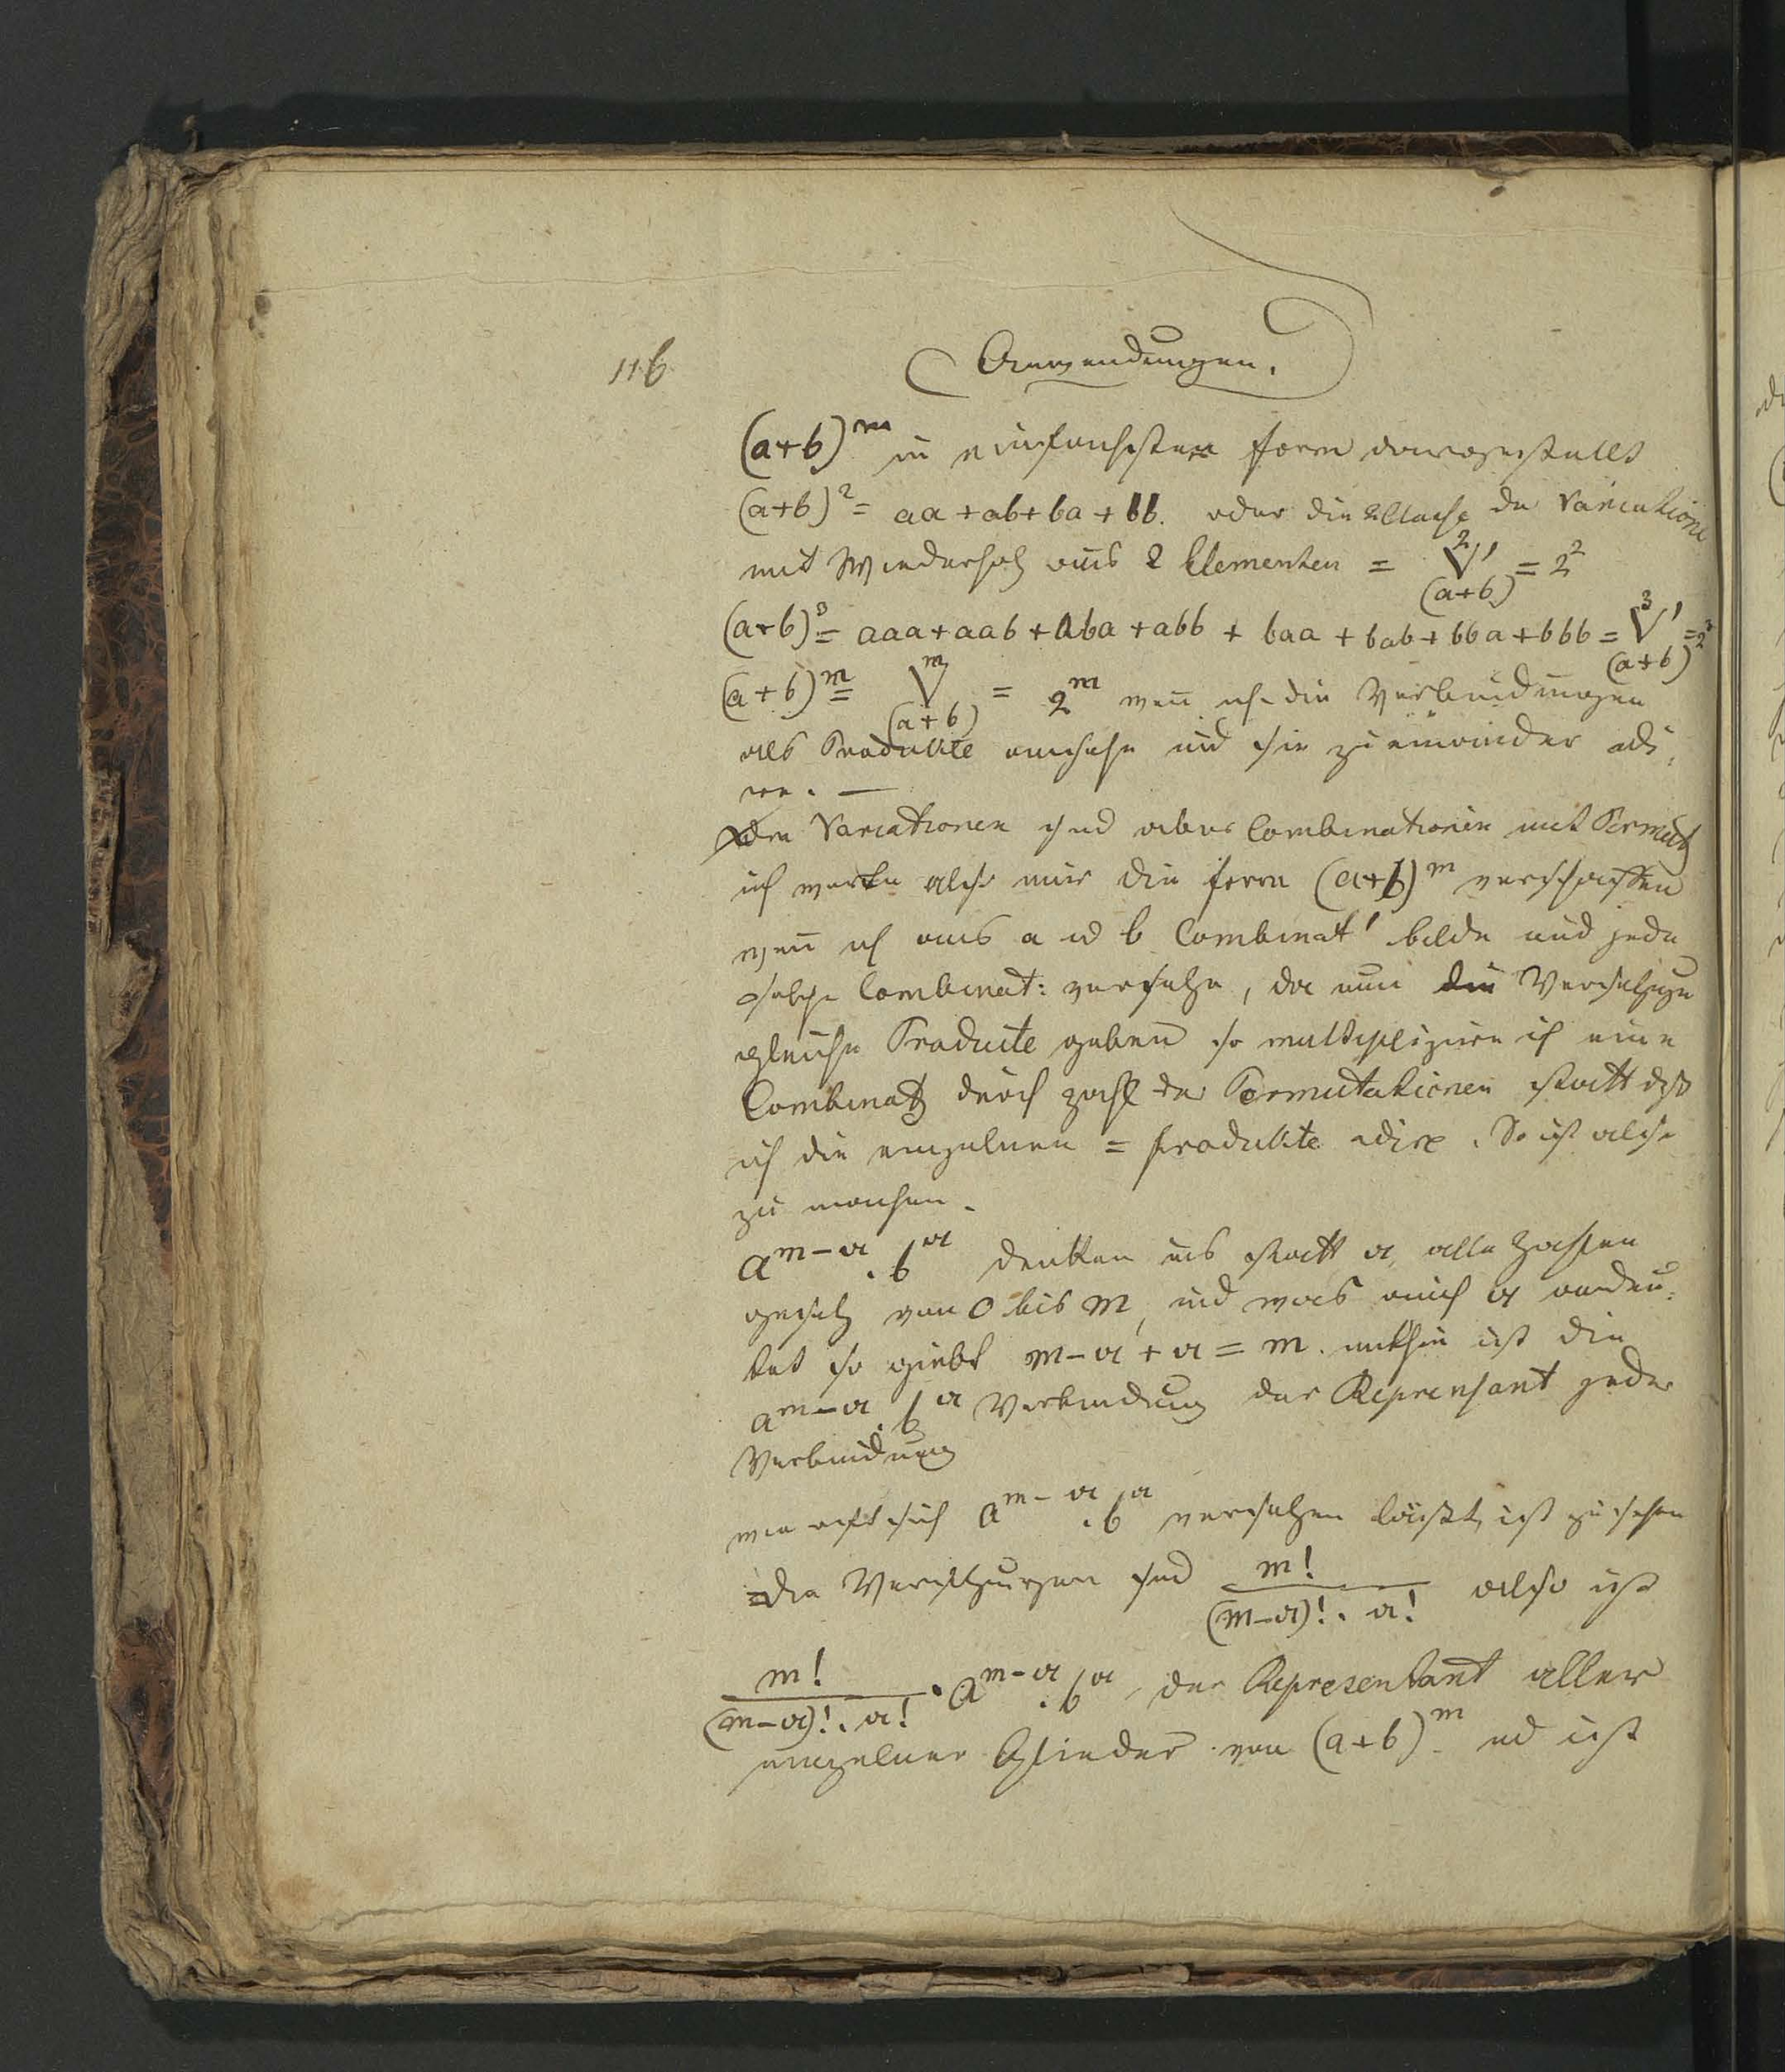 116.
Anwendungen.
(a+b)^m in einfachsten form dargestellt
(a+b)^2 = aa + ab + ba + bb. oder die 2 Classe der Variationen
mit Wiederholg aus 2 Elementen = ^2V'_(a+b) = 2^2
(a+b)^3 = aaa + aab + aba + abb + baa + bab + bba + bbb = ^3V'_(a+b) = 2^3
(a+b)^m = ^mV_(a+b) = 2^m wen̄ ich die Verbindungen
als Produkte ansehe und sie zu einander
Die Variationen sind aber Combinationen mit Permutg
ich werde also mir die form (a+b)^m verschaffen
wen̄ ich aus a ud b Combinat' bilde und jede
solche Combinat: versetze, da nun die Versetzungen
gleiche Producte geben so multiplizire ich eine
Combinatg durch Zahl der Permutationen statt dß
ich die einzelnen = produkte adire. So ist also
zu machen.
a^m-α . b^α denken uns statt α, alle Zahlen
gesetzt von 0 bis m, und was auch α andeu-
tet so giebt m-α + α = m. mithin ist die
a^m-α . b^α Verbindung der Reprensant jeder
Verbindung
wie oft sich a^m-α . b^α versetzen läßt, ist zu sehen
Die Versetzungen sind m!/(m-α)! . α! also ist
m!/(m-α)! . α! . a^m-α . b^α, der Representant aller
einzelner Glieder von (a+b)^m ud ist